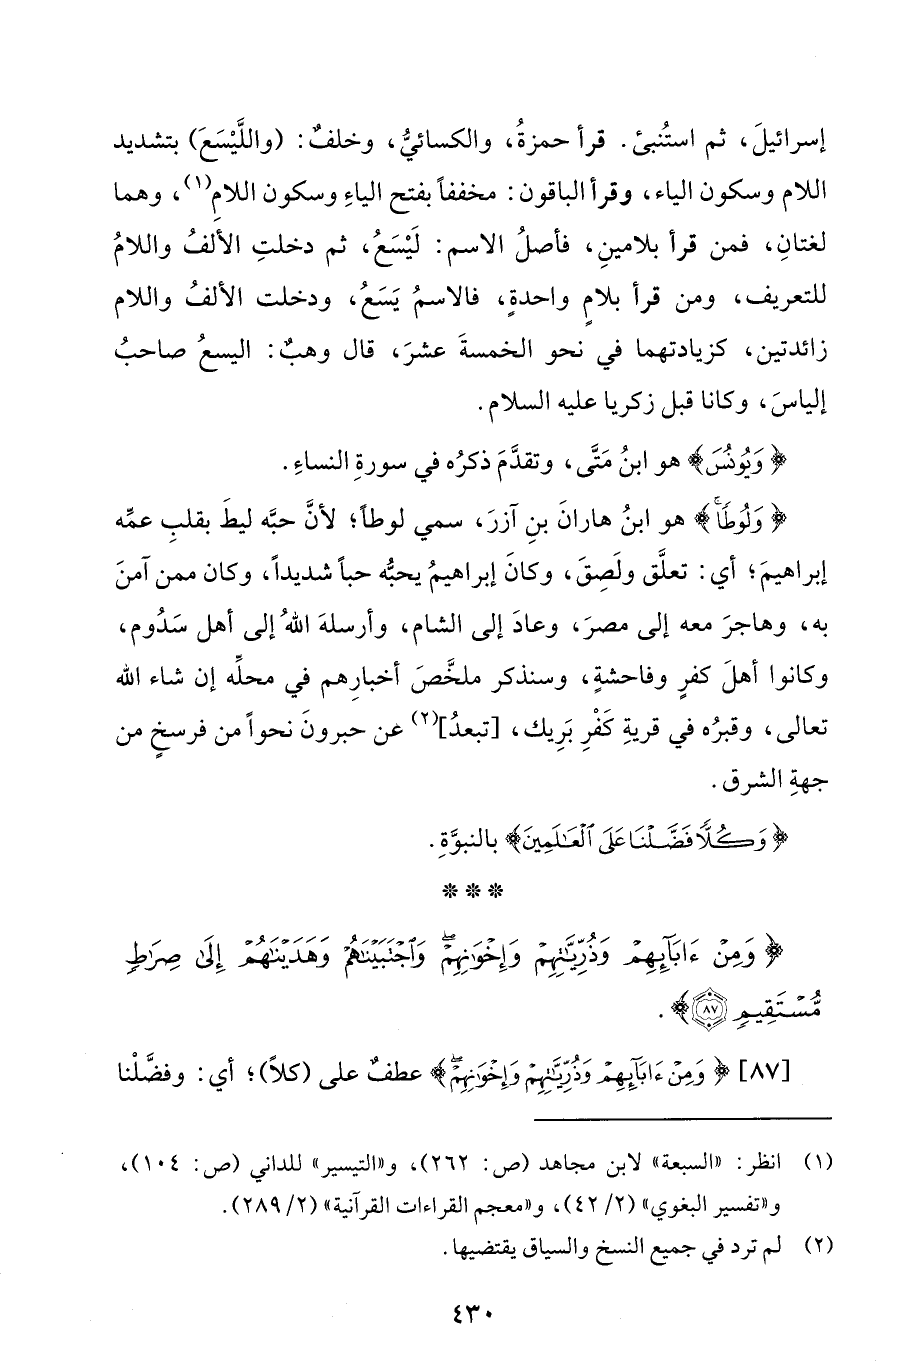 إسرائيلَ، ثم استُنبئ. قرأ حمزةُ، والكسائيُّ، وخلفٌ: (واللَّيْسَعَ) بتشديد
اللام وسكون الياء، وقرأ الباقون: مخففاً بفتح الياءِ وسكون اللامِ(١)، وهما
لغتانِ، فمن قرأ بلامينِ، فأصلُ الاسم: لَيْسَعُ، ثم دخلتِ الألفُ واللامُ
للتعريف، ومن قرأ بلامٍ واحدةٍ، فالاسمُ يَسَعُ، ودخلت الألفُ واللام
زائدتين، كزيادتهما في نحو الخمسةَ عشرَ، قال وهبٌ: اليسعُ صاحبُ
إلياسَ، وكانا قبل زكريا عليه السلام.
﴿وَيُونُسَ﴾ هو ابنُ مَتَّى، وتقدَّمَ ذكرُه في سورةِ النساءِ.
﴿وَلُوطًاۚ﴾ هو ابنُ هارانَ بنِ آزرَ، سمي لوطاً؛ لأنَّ حبَّه ليطَ بقلبِ عمِّه
إبراهيمَ؛ أي: تعلَّق ولَصِقَ، وكانَ إبراهيمُ يحبُّه حباً شديداً، وكان ممن آمنَ
به، وهاجرَ معه إلى مصرَ، وعادَ إلى الشام، وأرسلهَ اللهُ إلى أهل سَدُوم،
وكانوا أهلَ كفرٍ وفاحشةٍ، وسنذكر ملخَّصَ أخبارِهم في محلِّه إن شاء الله
تعالى، وقبرُه في قريةِ كَفْرِ بَرِيك، [تبعدُ](٢) عن حبرونَ نحواً من فرسخٍ من
جهةِ الشرق.
﴿وَكُلًّا فَضَّلْنَا عَلَى ٱلْعَٰلَمِينَ﴾ بالنبوَّةِ.
* * *
﴿وَمِنْ ءَابَآئِهِمْ وَذُرِّيَّٰتِهِمْ وَإِخْوَٰنِهِمْۖ وَٱجْتَبَيْنَٰهُمْ وَهَدَيْنَٰهُمْ إِلَىٰ صِرَٰطٍ
مُّسْتَقِيمٍ ٨٧﴾.
[٨٧] ﴿وَمِنْ ءَابَآئِهِمْ وَذُرِّيَّٰتِهِمْ وَإِخْوَٰنِهِمْۖ﴾ عطفٌ على (كلاً)؛ أي: وفضَّلْنا
(١) انظر: «السبعة» لابن مجاهد (ص: ٢٦٢)، و«التيسير» للداني (ص: ١٠٤)،
و«تفسير البغوي» (٢/ ٤٢)، و«معجم القراءات القرآنية» (٢/ ٢٨٩).
(٢) لم ترد في جميع النسخ والسياق يقتضيها.
٤٣٠